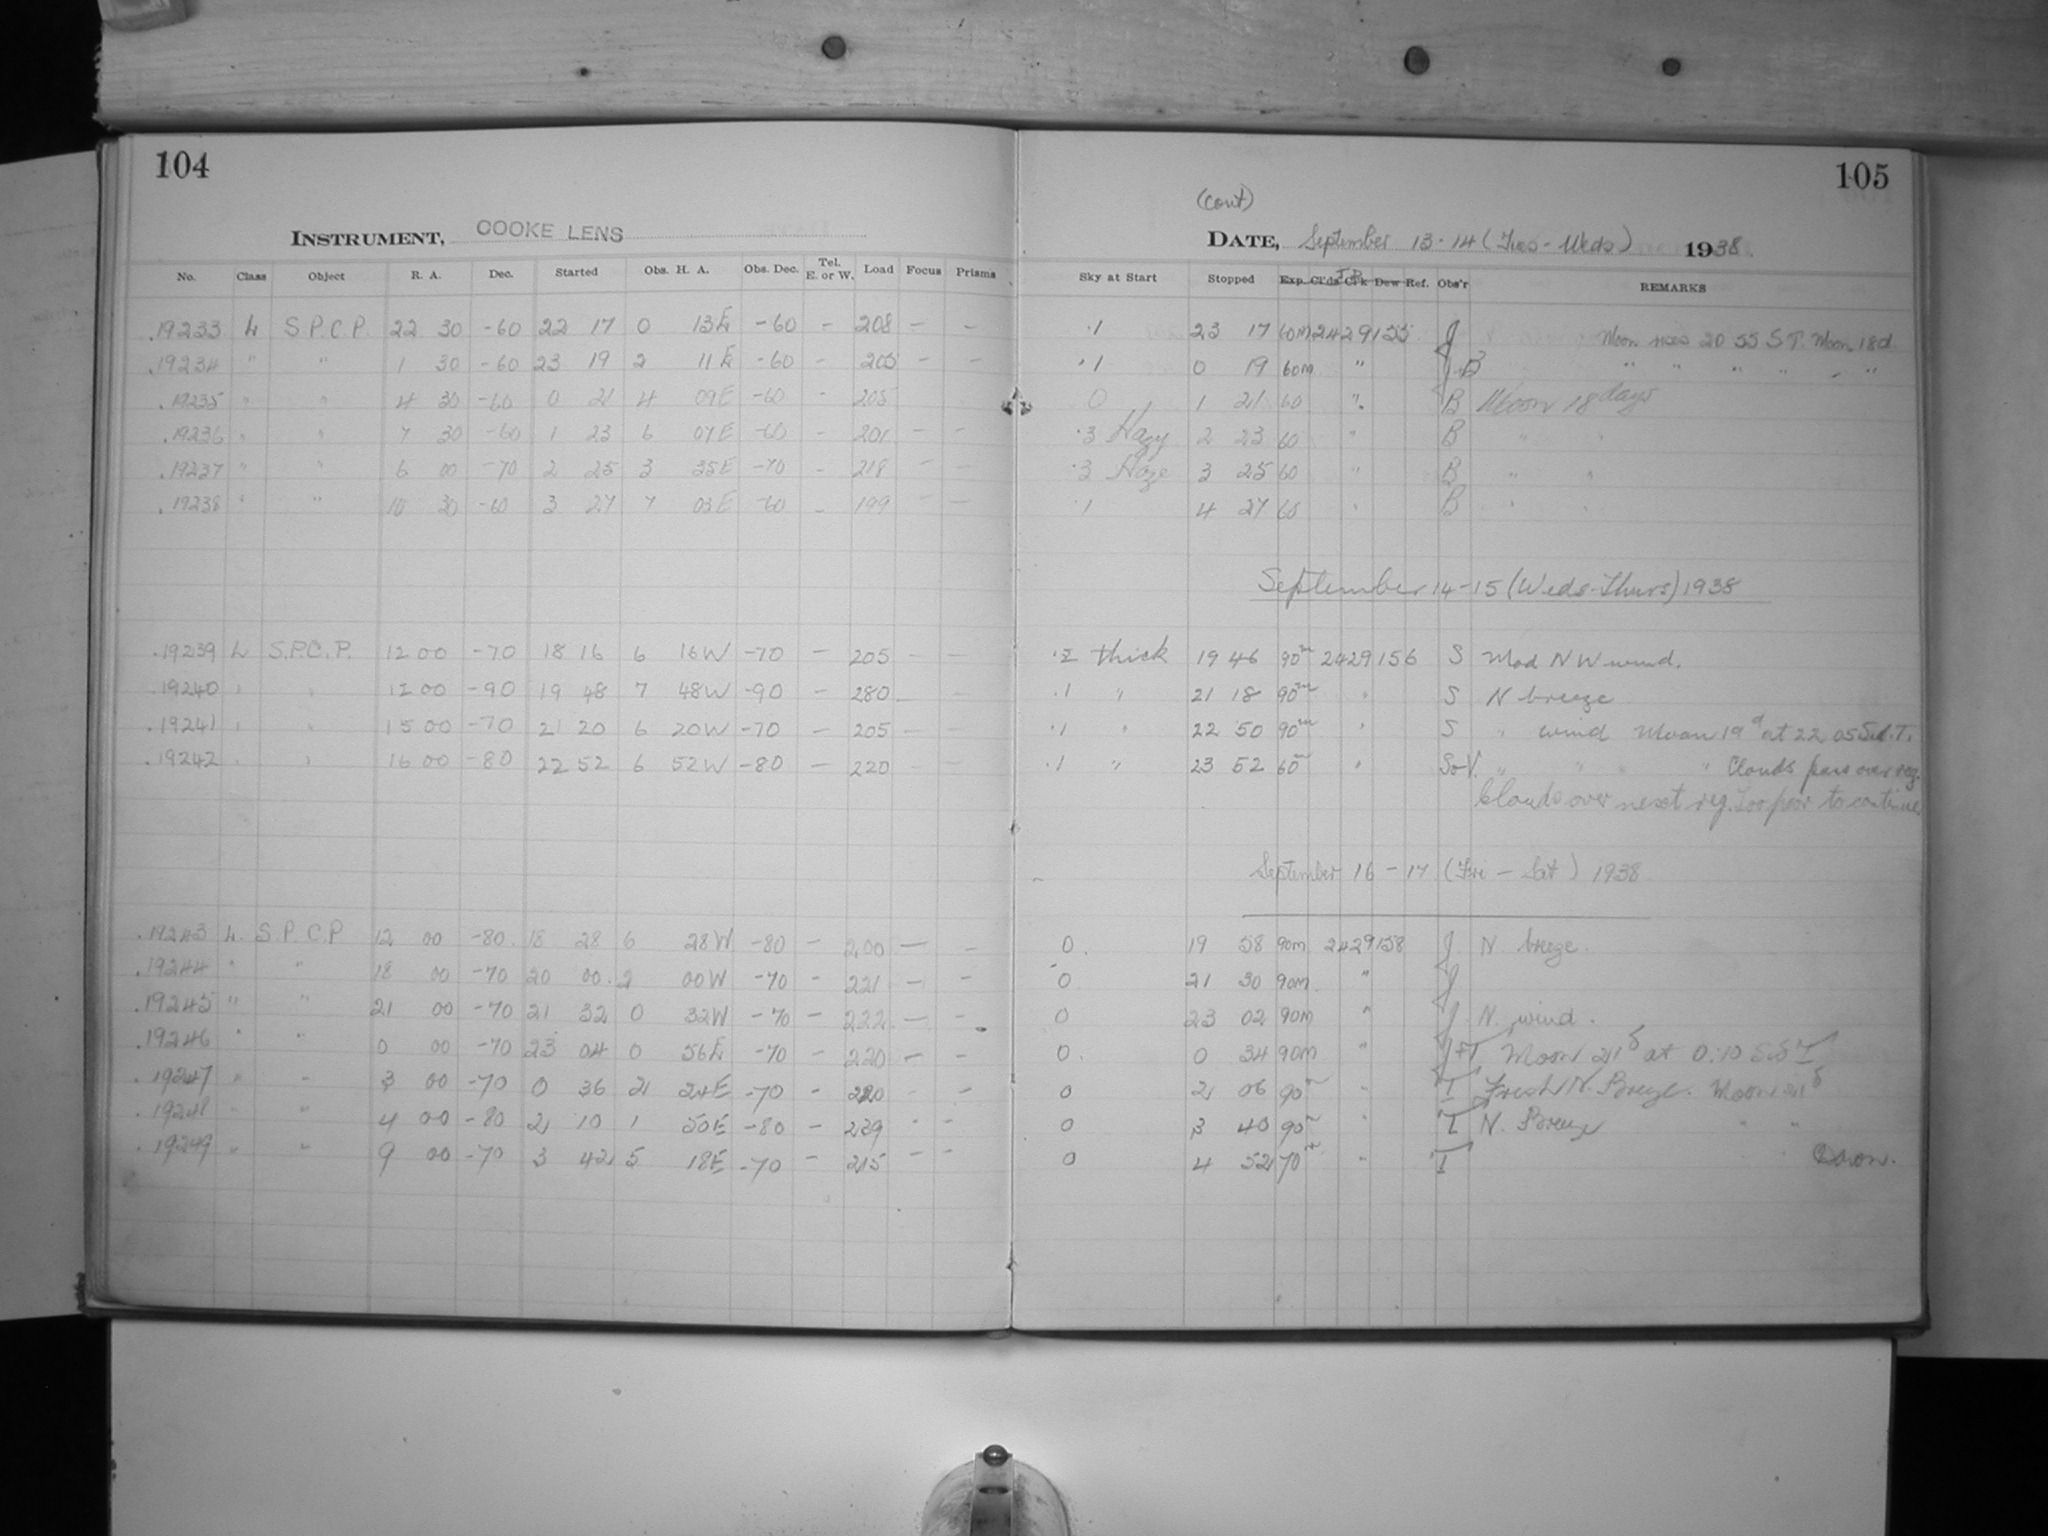 104
105
(cont)
INSTRUMENT, COOKE LENS
DATE, September 13-14 (Tues-Weds) 1938.
No. Class Object R. A. Dec. Started Obs. H. A. Obs. Dec. Tel. E. or W. Load Focus Prisms Sky at Start Stopped Exp. Cl'ds Cl'k Dew Ref. Obs'r REMARKS
J.D.
.19233 L S.P.C.P. 22 30 -60 22 17 0 13E -60 - 208 - - .1 23 17 60m 2429155 J Moon rises 20 55 S.T. Moon 18d
.19234 " " 1 30 -60 23 19 2 11E -60 - 205 - - .1 0 19 60m " J+B " " " " " "
.19235 " " 4 30 -60 0 21 4 09E -60 - 205 - - 0 1 21 60 " B Moon 18 days
.19236 " " 7 30 -60 1 23 6 07E -60 - 201 - - .3 Hazy 2 23 60 " B " "
.19237 " " 6 00 -70 2 25 3 35E -70 - 218 - - .3 Haze 3 25 60 " B " "
.19238 " " 10 30 -60 3 27 7 03E -60 - 199 - - .1 4 27 60 " B " "
September 14-15 (Weds-Thurs) 1938
.19239 L S.P.C.P. 12 00 -70 18 16 6 16W -70 - 205 - - .2 thick 19 46 90m 2429156 S Mod NW wind.
.19240 " " 12 00 -90 19 48 7 48W -90 - 280 - - .1 " 21 18 90m " S N breeze
.19241 " " 15 00 -70 21 20 6 20W -70 - 205 - - .1 " 22 50 90m " S " wind Moon 19d at 22 05 Sid.T.
.19242 " " 16 00 -80 22 52 6 52W -80 - 220 - - .1 " 23 52 60m " " " " " Clouds pass over reg.
Clouds over next reg. Too poor to continue
September 16-17 (Fri-Sat) 1938
.19243 L. S.P.C.P 12 00 -80 18 28 6 28W -80 - 200 - - 0 19 58 90m 2429158 J N. breeze.
.19244 " " 18 00 -70 20 00 2 00W -70 - 221 - - 0 21 30 90m " J
.19245 " " 21 00 -70 21 32 0 32W -70 - 222 - - 0 23 02 90m " J N. wind.
.19246 " " 0 00 -70 23 04 0 56E -70 - 220 - - 0. 0 34 90m " J+T Moon 21d at 0:10 Sid T
.19247 " " 3 00 -70 0 36 2 24E -70 - 220 - - 0 2 06 90m " T Fresh N. Breeze. Moon 21d
.19248 " " 4 00 -80 2 10 1 50E -80 - 239 - - 0 3 40 90m " T N. Breeze " "
.19249 " " 9 00 -70 3 42 5 18E -70 - 215 - - 0 4 52 70m " T " Dawn.